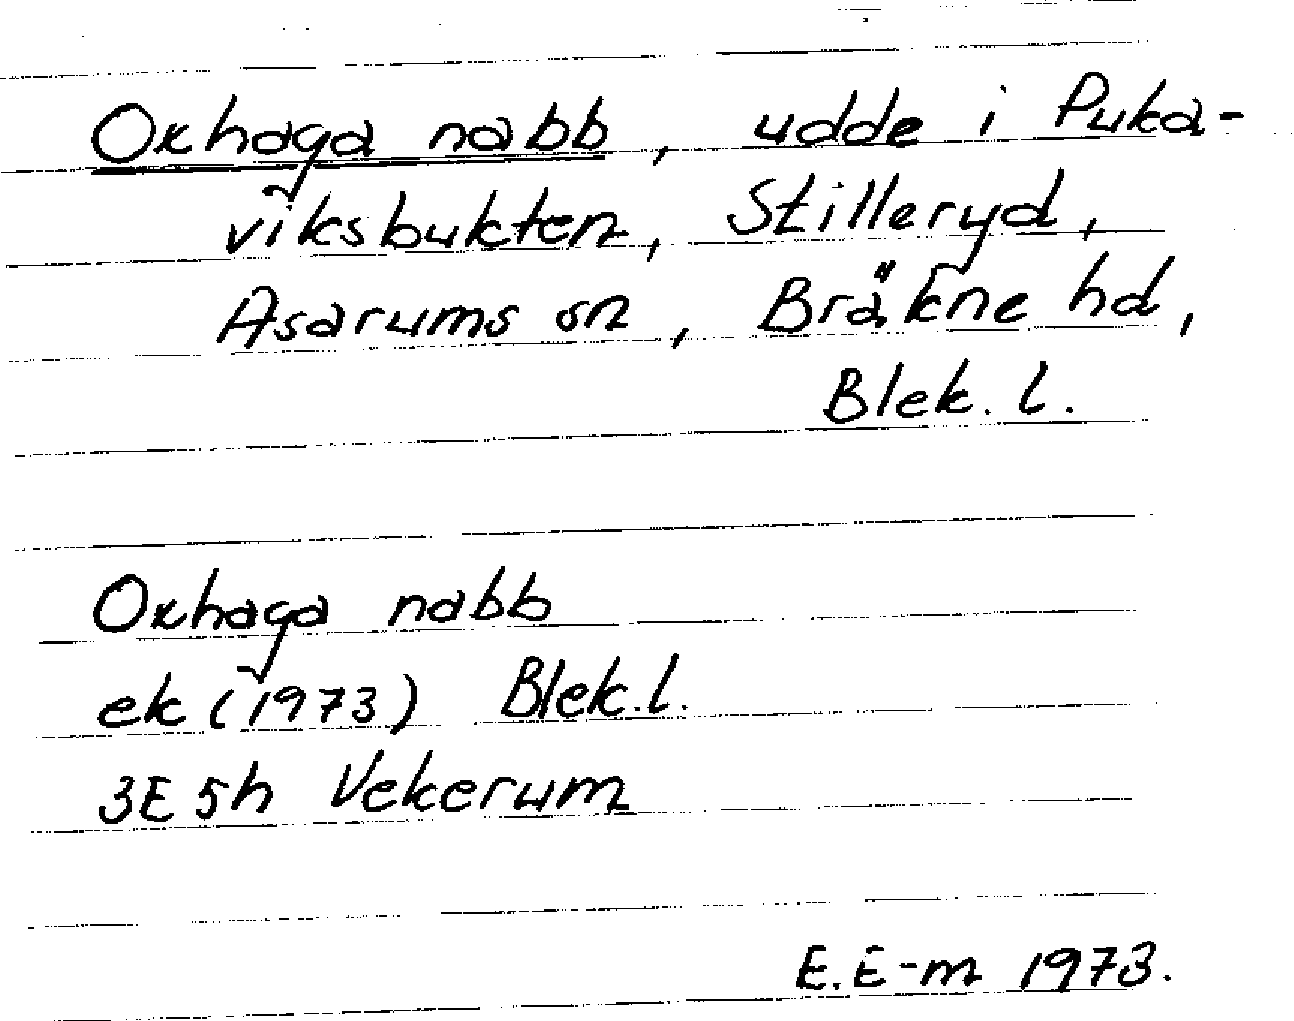 Oxhaga nabb, udde i Puka-
viksbukten, Stilleryd,
Asarums sn, Bräkne hd,
Blek. l.
Oxhaga nabb
ek (1973) Blek. l.
3E 5h Vekerum
E. E-m 1973.